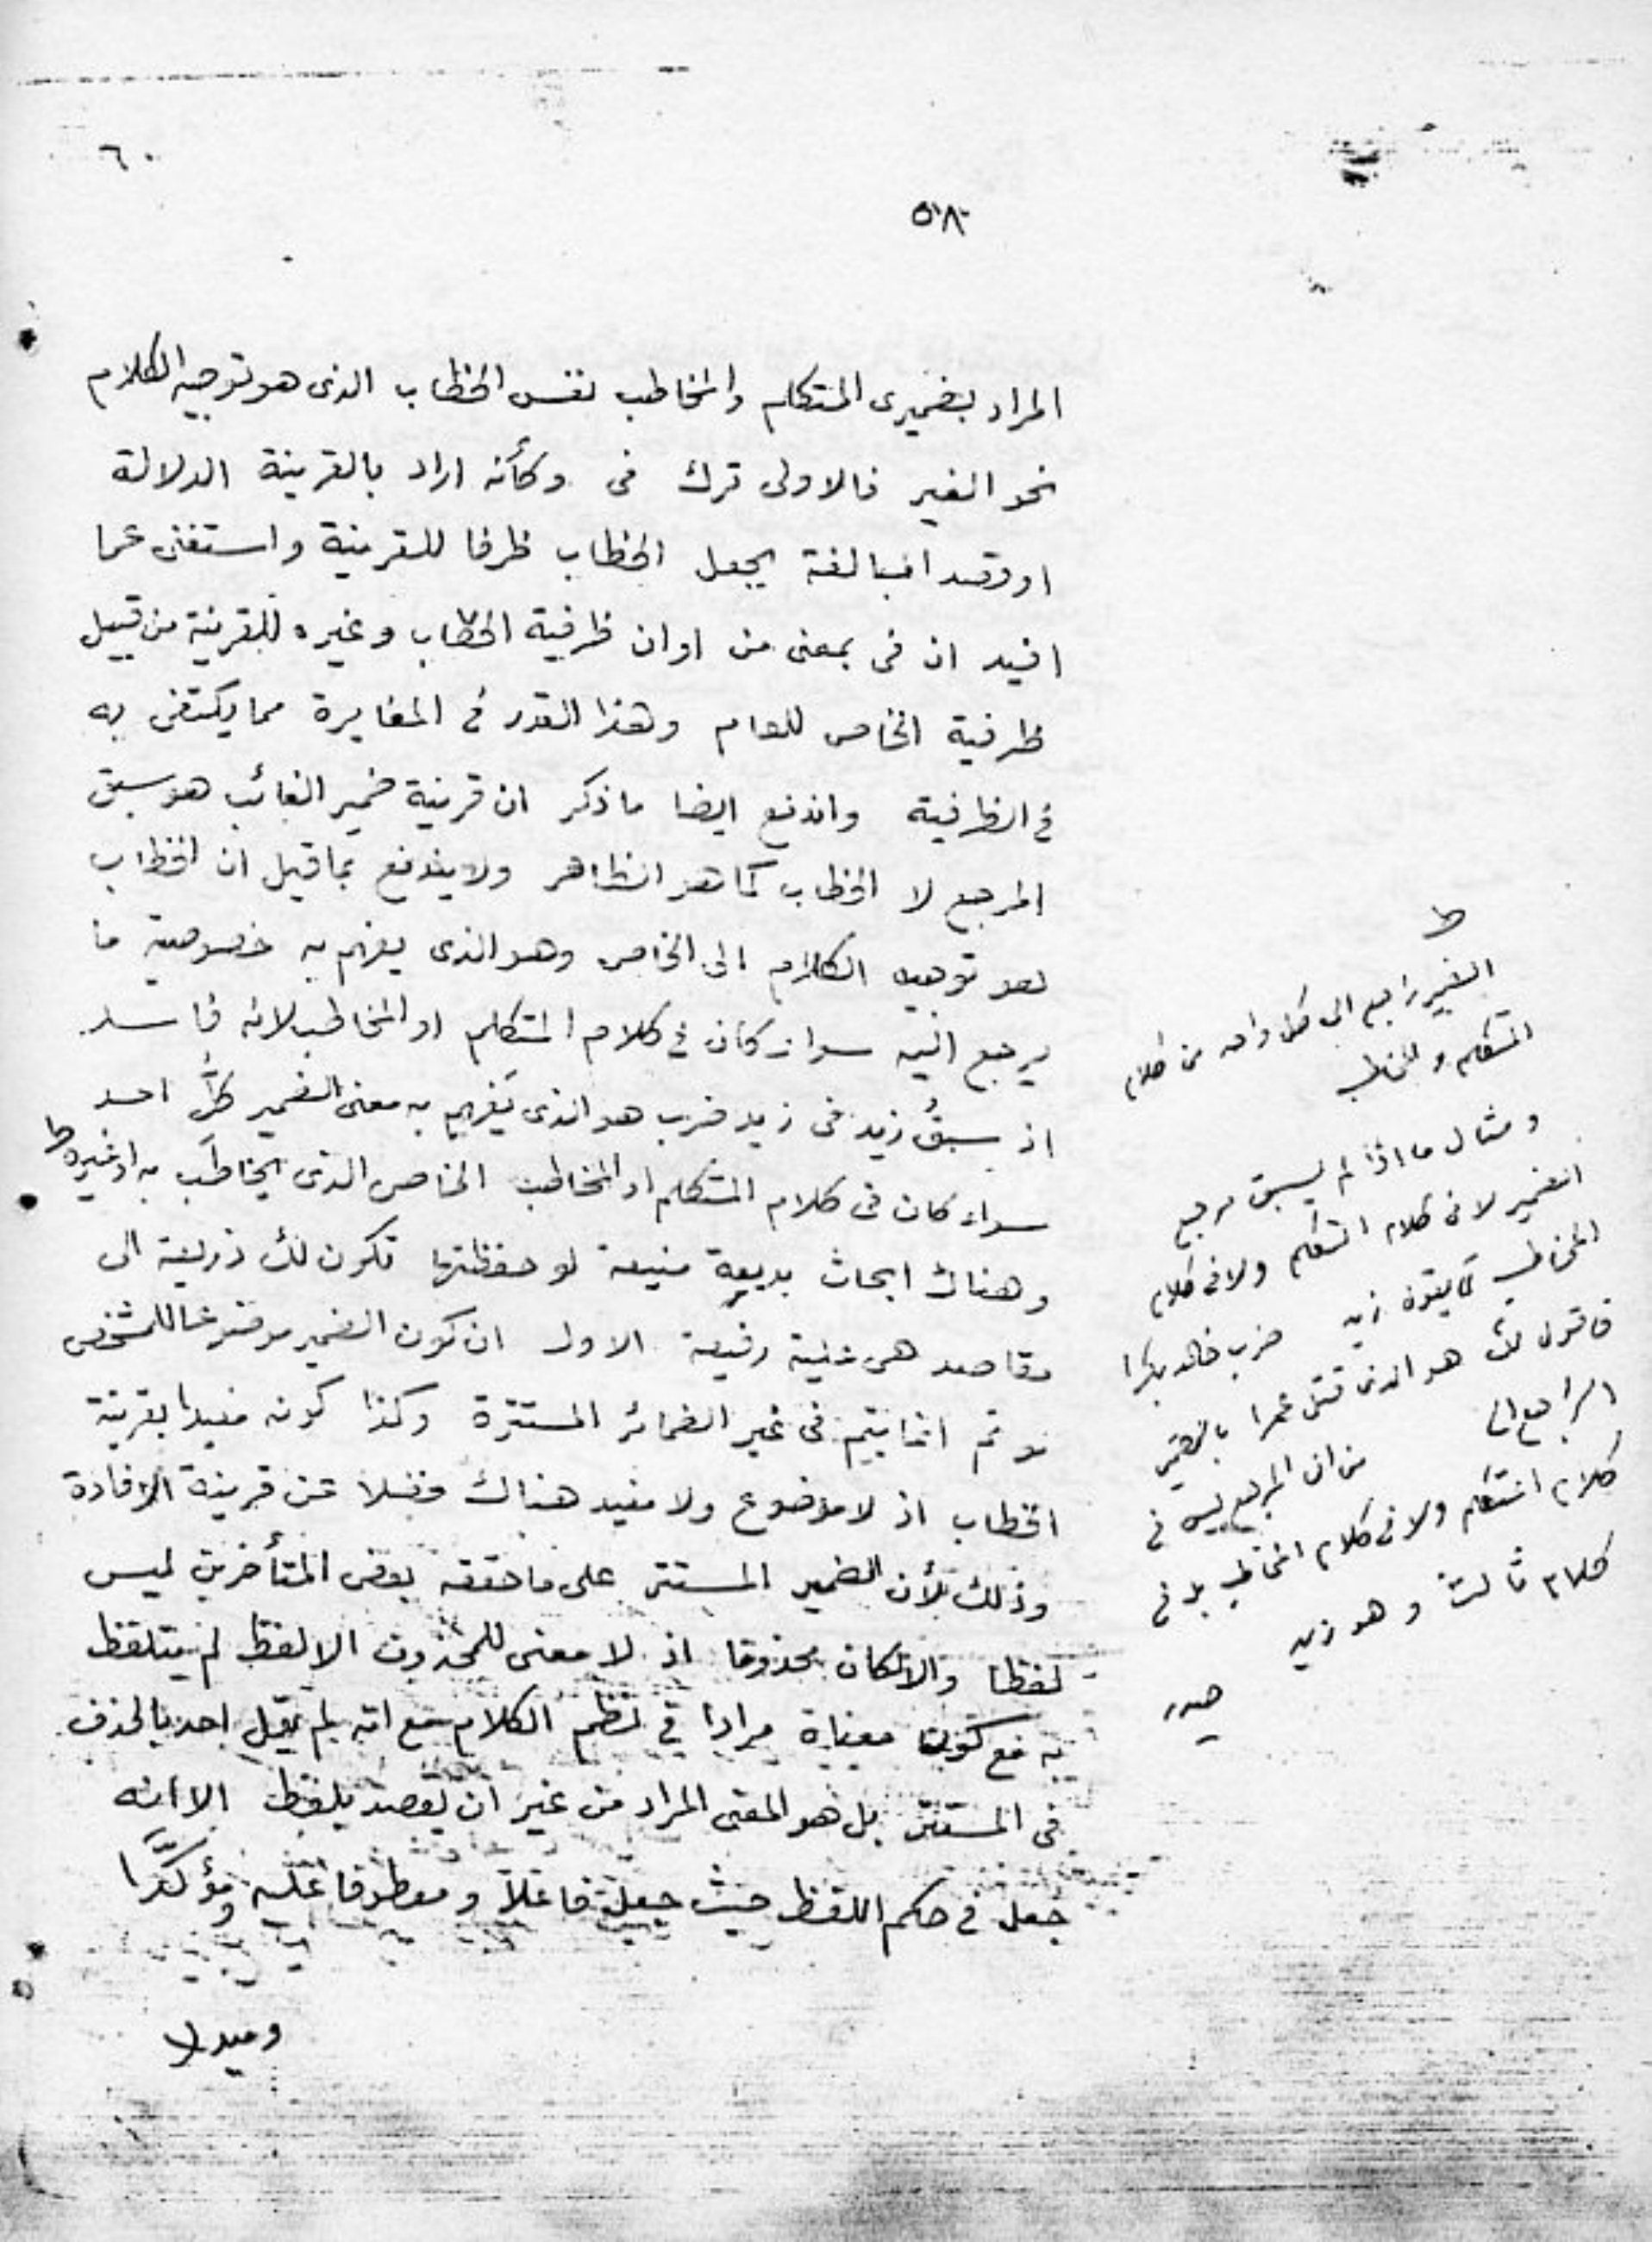 ٦٠
٥٨
المراد بضميرى المتكلم والمخاطب نفس الخطاب الذى هو توجيه الكلام
نحو الغير فالاولى ترك فى وكأنه اراد بالقرينة الدلالة
او قصد المبالغة بجعل الخطاب ظرفا للقرينة واستغنى عما
افيد ان فى بمعنى من او ان ظرفية الخطاب وغيره للقرينة من قبيل
ظرفية الخاص للعام وهذا القدر فى المغايرة مما يكتفى به
فى الظرفية واندفع ايضا ما ذكر ان قرينة ضمير الغائب هو سبق
المرجع لا الخطاب كما هو الظاهر ولا يندفع بما قيل ان الخطاب
هو توجيه الكلام الى الخاص وهو الذى يفهم به خصوصية ما
يرجع اليه سواء كان فى كلام المتكلم او المخاطب لانه فاسد
اذ سبق زيد فى زيد ضرب هو الذى يفهم به معنى الضمير كل احد
سواء كان فى كلام المتكلم او المخاطب الخاص الذى يخاطب به او غيره ط
وهناك ابحاث بديعة منيعة لو حفظتها تكون لك ذريعة الى
مقاصد هى علية رفيعة الاول ان كون الضمير موضوعا للمشخص
لو تم انما يتم فى غير الضمائر المستترة وكذا كونه مفيدا بقرينة
الخطاب اذ لا موضوع ولا مفيد هناك فضلا عن قرينة الافادة
وذلك لأن الضمير المستتر على ما حققه بعض المتأخرين ليس
لفظا والا لكان محذوفا اذ لا معنى للمحذوف الا لفظ لم يتلفظ
به مع كون معناه مرادا فى نظم الكلام مع انه لم يقل احد بالحذف
فى المستتر بل هو المعنى المراد من غير ان يقصد بلفظ الا انه
جعل فى حكم اللفظ حيث جعل فاعلا ومعطوفا عليه ومؤكدا
ط
الضمير راجع الى كل واحد من كلام
المتكلم والمخاطب
ومثال ما اذا لم يسبق مرجع
الضمير لا فى كلام المتكلم ولا فى كلام
المخاطب كما يقول زيد ضرب خالد بكرا
فاقول لك هو الذى قتل عمرا بالضمير
الراجع الى
من ان المرجع ليس فى
كلام المتكلم ولا فى كلام المخاطب بل فى
كلام ثالث وهو زيد